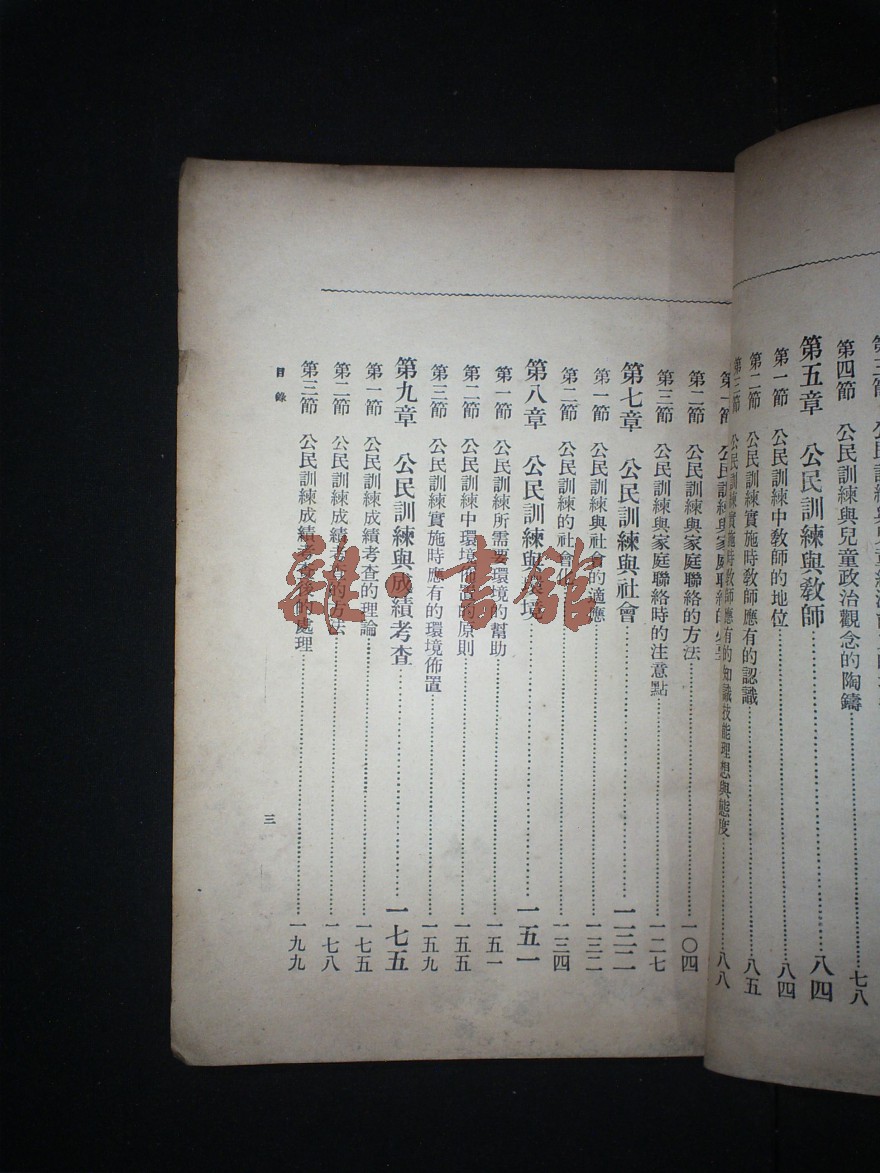 第四節　公民訓練與兒童政治觀念的陶鑄……七八
第五章　公民訓練與教師……八四
第一節　公民訓練中教師的地位……八四
第二節　公民訓練實施時教師應有的認識……八五
第三節　公民訓練實施時教師應有的知識技能理想與態度……八八
第一節　公民訓練與家庭聯絡的
第二節　公民訓練與家庭聯絡的方法……一〇四
第三節　公民訓練與家庭聯絡時的注意點……一二七
第七章　公民訓練與社會……一三二
第一節　公民訓練與社會的適應……一三二
第二節　公民訓練的社會化……一三四
第八章　公民訓練與環境……一五一
第一節　公民訓練所需要環境的幫助……一五一
第二節　公民訓練中環境佈置的原則……一五五
第三節　公民訓練實施時應有的環境佈置……一五九
第九章　公民訓練與成績考查……一七五
第一節　公民訓練成績考查的理論……一七五
第二節　公民訓練成績考查的方法……一七八
第三節　公民訓練成績考查後的處理……一九九
目錄
三
雜·書館